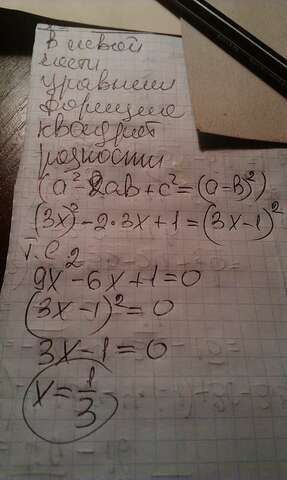 в левой
части
уравнени
формула
квадрат
разности
(a²-2ab+c²=(a-b)²)
(3x)²-2·3x+1=(3x-1)²
т.е
9x²-6x+1=0
(3x-1)²=0
3x-1=0
x=1/3